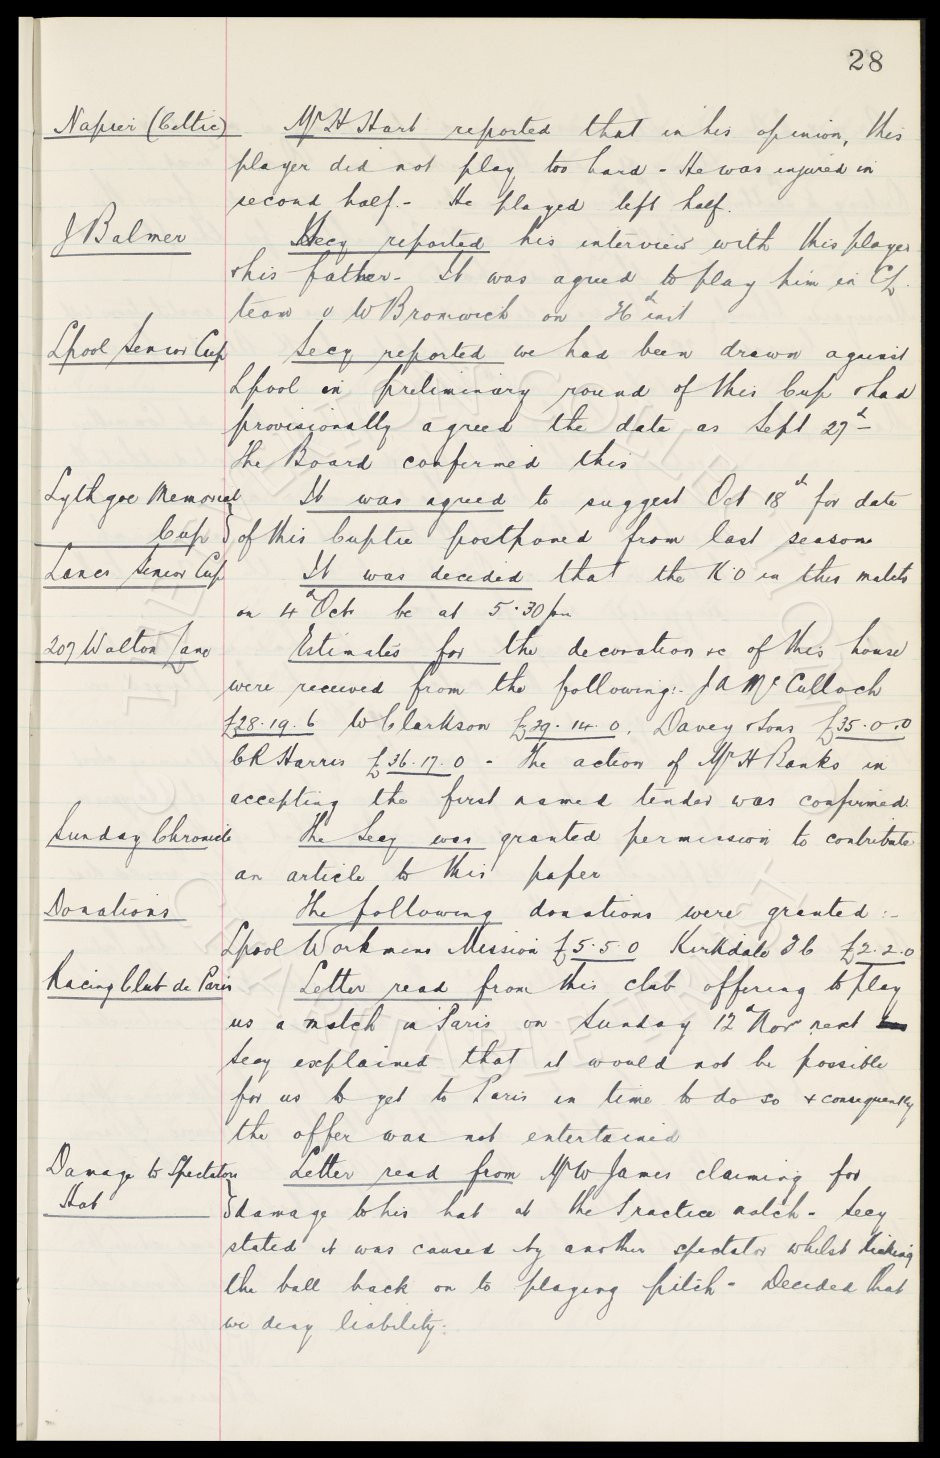 28
Napier (Celtic) Mr H Hart reported that in his opinion, this
player did not play too hard - He was injured in
second half. - He played left half.
J Balmer Secy reported his interview with this player
& his father - It was agreed to play him in CL
team v W Bromwich on 26th inst
Lpool Senior Cup Secy reported we had been drawn against
Lpool in preliminary round of this Cup & had
provisionally agreed the date as Sept 27th -
The Board confirmed this
Lythgoe Memorial It was agreed to suggest Oct 18th for date
Cup } of this Cuptie postponed from last season
Lancs Senior Cup It was decided that the K.O in this match
on 4th Octr be at 5.30 pm
207 Walton Lane Estimates for the decoration &c of this house
were received from the following:- J A McCulloch
£28.19.6 W Clarkson £29.14.0. Davey & Sons £35.0.0
C R Harris £36.17.0 - The action of Mr H Banks in
accepting the first named tender was confirmed.
Sunday Chronicle The Secy was granted permission to contribute
an article to this paper
Donations The following donations were granted :-
Lpool Workmens Mission £5.5.0 Kirkdale £2.2.0
Racing Club de Paris Letter read from this club offering to play
us a match in Paris on Sunday 12th Nov next
Secy explained that it would not be possible
for us to get to Paris in time to do so & consequently
the offer was not entertained
Damage to Spectators Letter read from Mr W James claiming for
Hat } damage to his hat at the Practice match - Secy
stated it was caused by another spectator whilst kicking
the ball back on to playing pitch - Decided that
we deny liability.